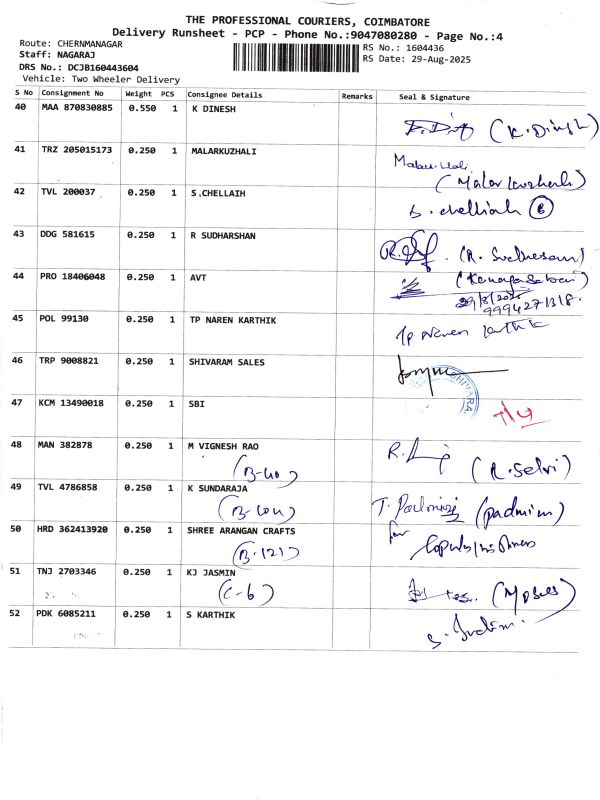 THE PROFESSIONAL COURIERS, COIMBATORE
Delivery Runsheet - PCP - Phone No.:9047080280 - Page No.:4
Route: CHERNMANAGAR
Staff: NAGARAJ
DRS No.: DCJB160443604
Vehicle: Two Wheeler Delivery
RS No.: 1604436
RS Date: 29-Aug-2025
S No Consignment No Weight PCS Consignee Details Remarks Seal & Signature
40 MAA 870830885 0.550 1 K DINESH
(K. Dinesh)
41 TRZ 205015173 0.250 1 MALARKUZHALI
(Malarkuzhali)
42 TVL 200037 0.250 1 S,CHELLAIH
S. chelliah 6
43 DDG 581615 0.250 1 R SUDHARSHAN
44 PRO 18406048 0.250 1 AVT
29/8/2025
9994271318
45 POL 99130 0.250 1 TP NAREN KARTHIK
Tp Naren Karthik
46 TRP 9008821 0.250 1 SHIVARAM SALES
47 KCM 13490018 0.250 1 SBI
48 MAN 382878 0.250 1 M VIGNESH RAO
(B-40)
(R. Selvi)
49 TVL 4786858 0.250 1 K SUNDARAJA
(padmini)
50 HRD 362413920 0.250 1 SHREE ARANGAN CRAFTS
(B-121)
for
51 TNJ 2703346 0.250 1 KJ JASMIN
(C-6)
(Moses)
52 PDK 6085211 0.250 1 S KARTHIK